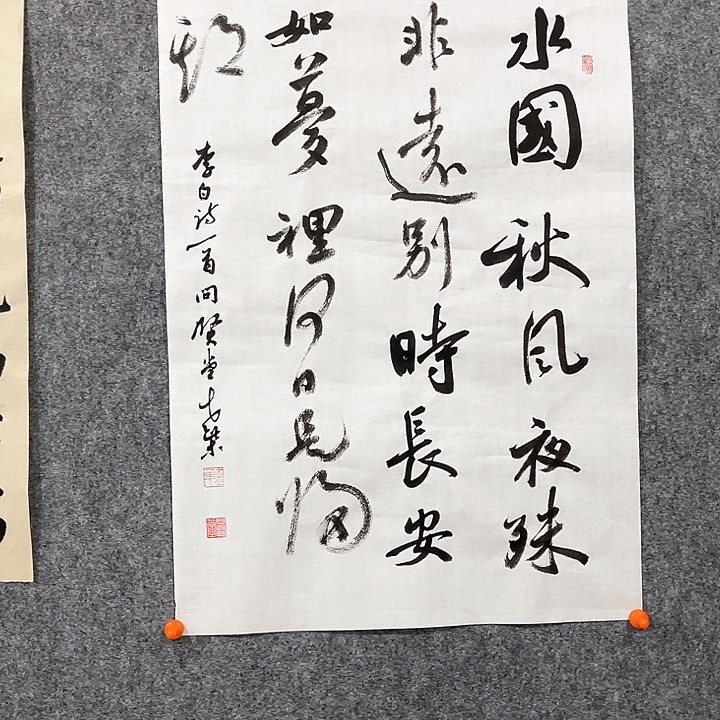 水國秋风夜殊
非遠別時長安
如夢裡何日是歸
期
李白诗一首问贤堂